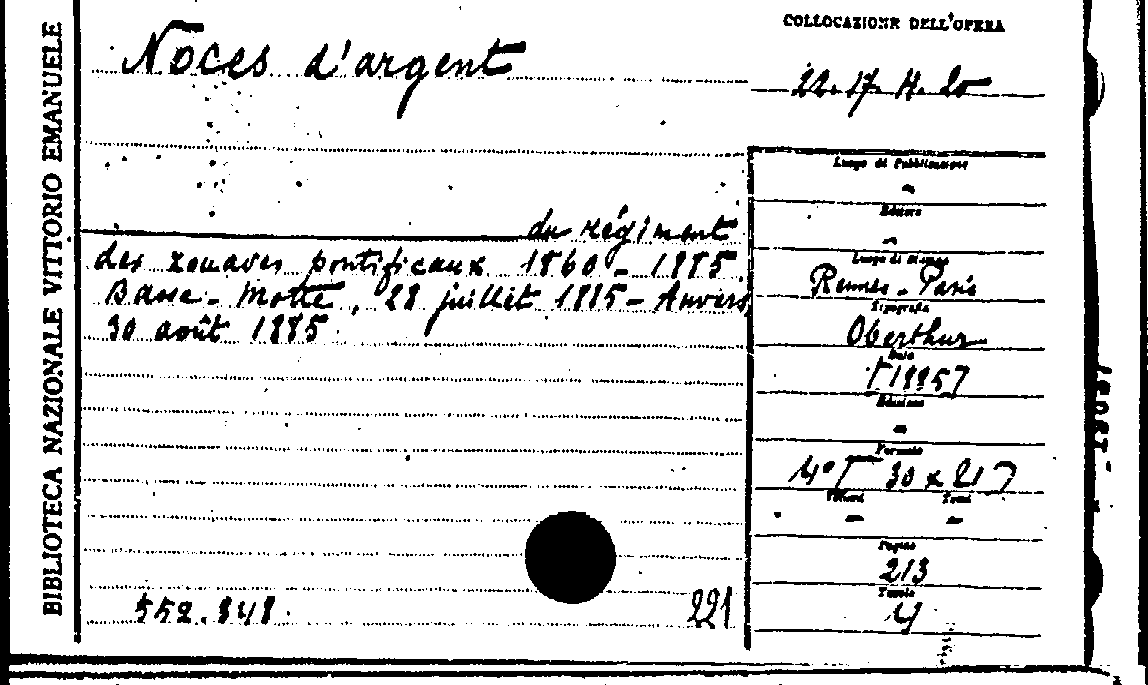 BIBLIOTECA NAZIONALE VITTORIO EMANUELE
Noces d'argent
du régiment
des zouaves pontificaux 1860 - 1885.
Basse - Motte, 28 juillet 1885 - Anvers
30 août 1885
552.848
221
COLLOCAZIONE DELL'OPERA
22. 17. H. 20
Luogo di Pubblicazione
-
Editore
-
Luogo di Stampa
Rennes - Paris
Tipografia
Oberthur
Data
[1885]
Edizione
-
Formato
4° [30 x 21]
Volumi Tomi
- -
Pagine
213
Tavole
4